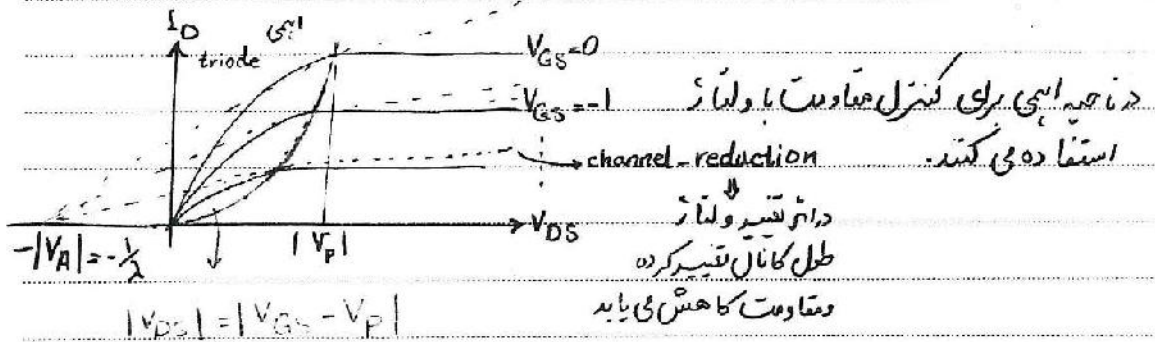 I_D
triode
اهمی
V_GS=0
V_GS=-1
در ناحیه اهمی برای کنترل مقاومت با ولتاژ
استفاده می کنند.
channel-reduction
V_DS
⇓
در اثر تغییر ولتاژ
طول کانال تغییر کرده
ومقاومت کاهش می یابد
-|V_A|=-1/λ
|V_P|
|V_DS|=|V_GS-V_P|